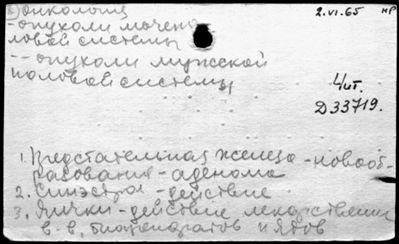 онкология
2.VI.65
НР
- опухоли мочепо
ловой системы
-- опухоли мужской
половой системы
Чит.
Д33719.
1. Предстательная железа - новооб-
разования - аденома
2. Синэстрол - действие
3. Яички - действие лекарственных
в.-в. биопрепаратов и ядов